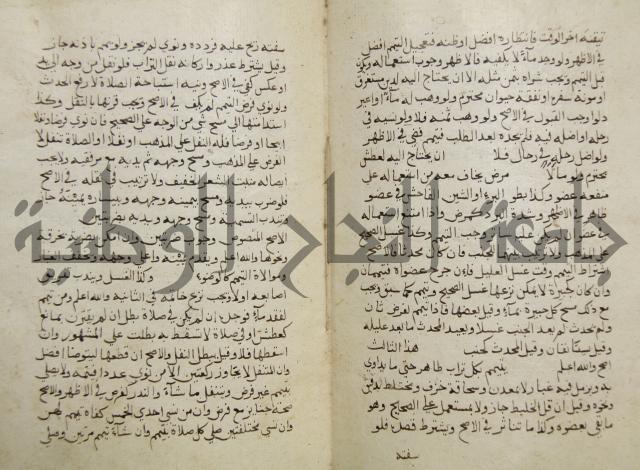 تيقنه اخر الوقت فانتظاره افضل اوظنه فتعجيل التيمم افضل
في الاظهر ولو وجد مآء لا يكفيه فالاظهر وجوب استعماله ويكون
قبل التيمم ويجب شراه بثمن مثله الا ان يحتاج اليه لدين مستغرق
اومونة سفره اونفقة حيوان محترم ولو وهب له مآء اواعير
دلوا وجب القبول في الاصح ولو وهب ثمنه فلا ولو نسيه في
رحله اواضله فيه فلم يجده بعد الطلب فتيمم قضي في الاظهر
ولو اضل رحله في رحال فلا ان يحتاج اليه لعطش
محترم ولو مآلا مرض يخاف معه من استعماله على
منفعة عضو وكذا بطؤ البرء اوالشين الفاحش في عضو
ظاهر في الاظهر وشدة البرد كمرض واذا امتنع استعماله
في عضو ان لم يكن عليه ساتر وجب التيمم وكذا غسل الصحيح
على المذهب ولا ترتيب بينهما للجنب فان كان محدثا فالاصح
اشتراط التيمم وقت غسل العليل فان جرح عضواه فتيممان
وان كان كجبيرة لا يمكن نزعها غسل الصحيح وتيمم كما سبق ويجب
مع ذلك مسح كل جبيرة بمآء وقيل بعضها فاذا تيمم لفرض ثان
ولم يحدث لم يعد الجنب غسلا ويعيد المحدث ما بعد عليله
وقيل يستانفان وقيل المحدث كجنب هذا الثالث
اصح والله اعلم يتيمم بكل تراب طاهر حتى ما يداوي
به وبرمل فيه غبار لا بمعدن وسحاقة خزف ومختلط بدقيق
ونحوه وقيل ان قل الخليط جاز ولا بمستعمل على الصحيح وهو
ما بقي بعضوه وكذا ما تناثر في الاصح ويشترط قصده فلو
سفته
سفته ريح عليه فردده ونوي لم يجز ولو يمم باذنه جاز
وقيل يشترط عذر واركانه نقل التراب فلو نقل من وجه الى يد
اوعكس كفي في الاصح ونية استباحة الصلاة لا رفع الحدث
ولو نوي فرض التيمم لم يكف في الاصح ويجب قرنها بالنقل وكذا
استدامتها الى مسح شي من الوجه على الصحيح فان نوي فرضا ونفلا
ابيحا او فرضا فله النفل على المذهب اونفلا او الصلاة تنفل لا
الفرض على المذهب ومسح وجهه ثم يديه مع مرفقيه ولا يجب
ايصاله منبت الشعر الخفيف ولا ترتيب في نقله في الاصح
فلو ضرب بيديه ومسح بيمينه وجهه وبيساره يمينه جاز
وتندب التسمية ومسح وجهه ويديه بضربتين
الاصح المنصوص وجوب ضربتين وان امكن بضربة بخرقة
ونحوها والله اعلم ويقدم يمينه واعلى وجهه وتخفيف الغبار
وموالاة التيمم كالوضوء وكذا الغسل ويندب تفريق
اصابعه اولا ويجب نزع خاتمه في الثانية والله اعلم ومن تيمم
لفقد مآء فوجده ان لم يكن في صلاة بطل ان لم يقترن بمانع
كعطش او في صلاة لا تسقط به بطلت على المشهور وان
اسقطها فلا وقيل يبطل النفل والاصح ان قطعها ليتوضا افضل
وان المتنفل لا يجاوز ركعتين الا من نوي عددا فيتمه ولا يصلي
بتيمم غير فرض ويتنفل ما شآء والنذر كفرض في الاظهر والاصح
صحة جنايز مع فرض وان من نسي احدى الخمس كفاه تيمم لهن
وان نسي مختلفتين صلى كل صلاة بتيمم وان شآء تيمم مرتين وصلى
جامعة النجاح الوطنية